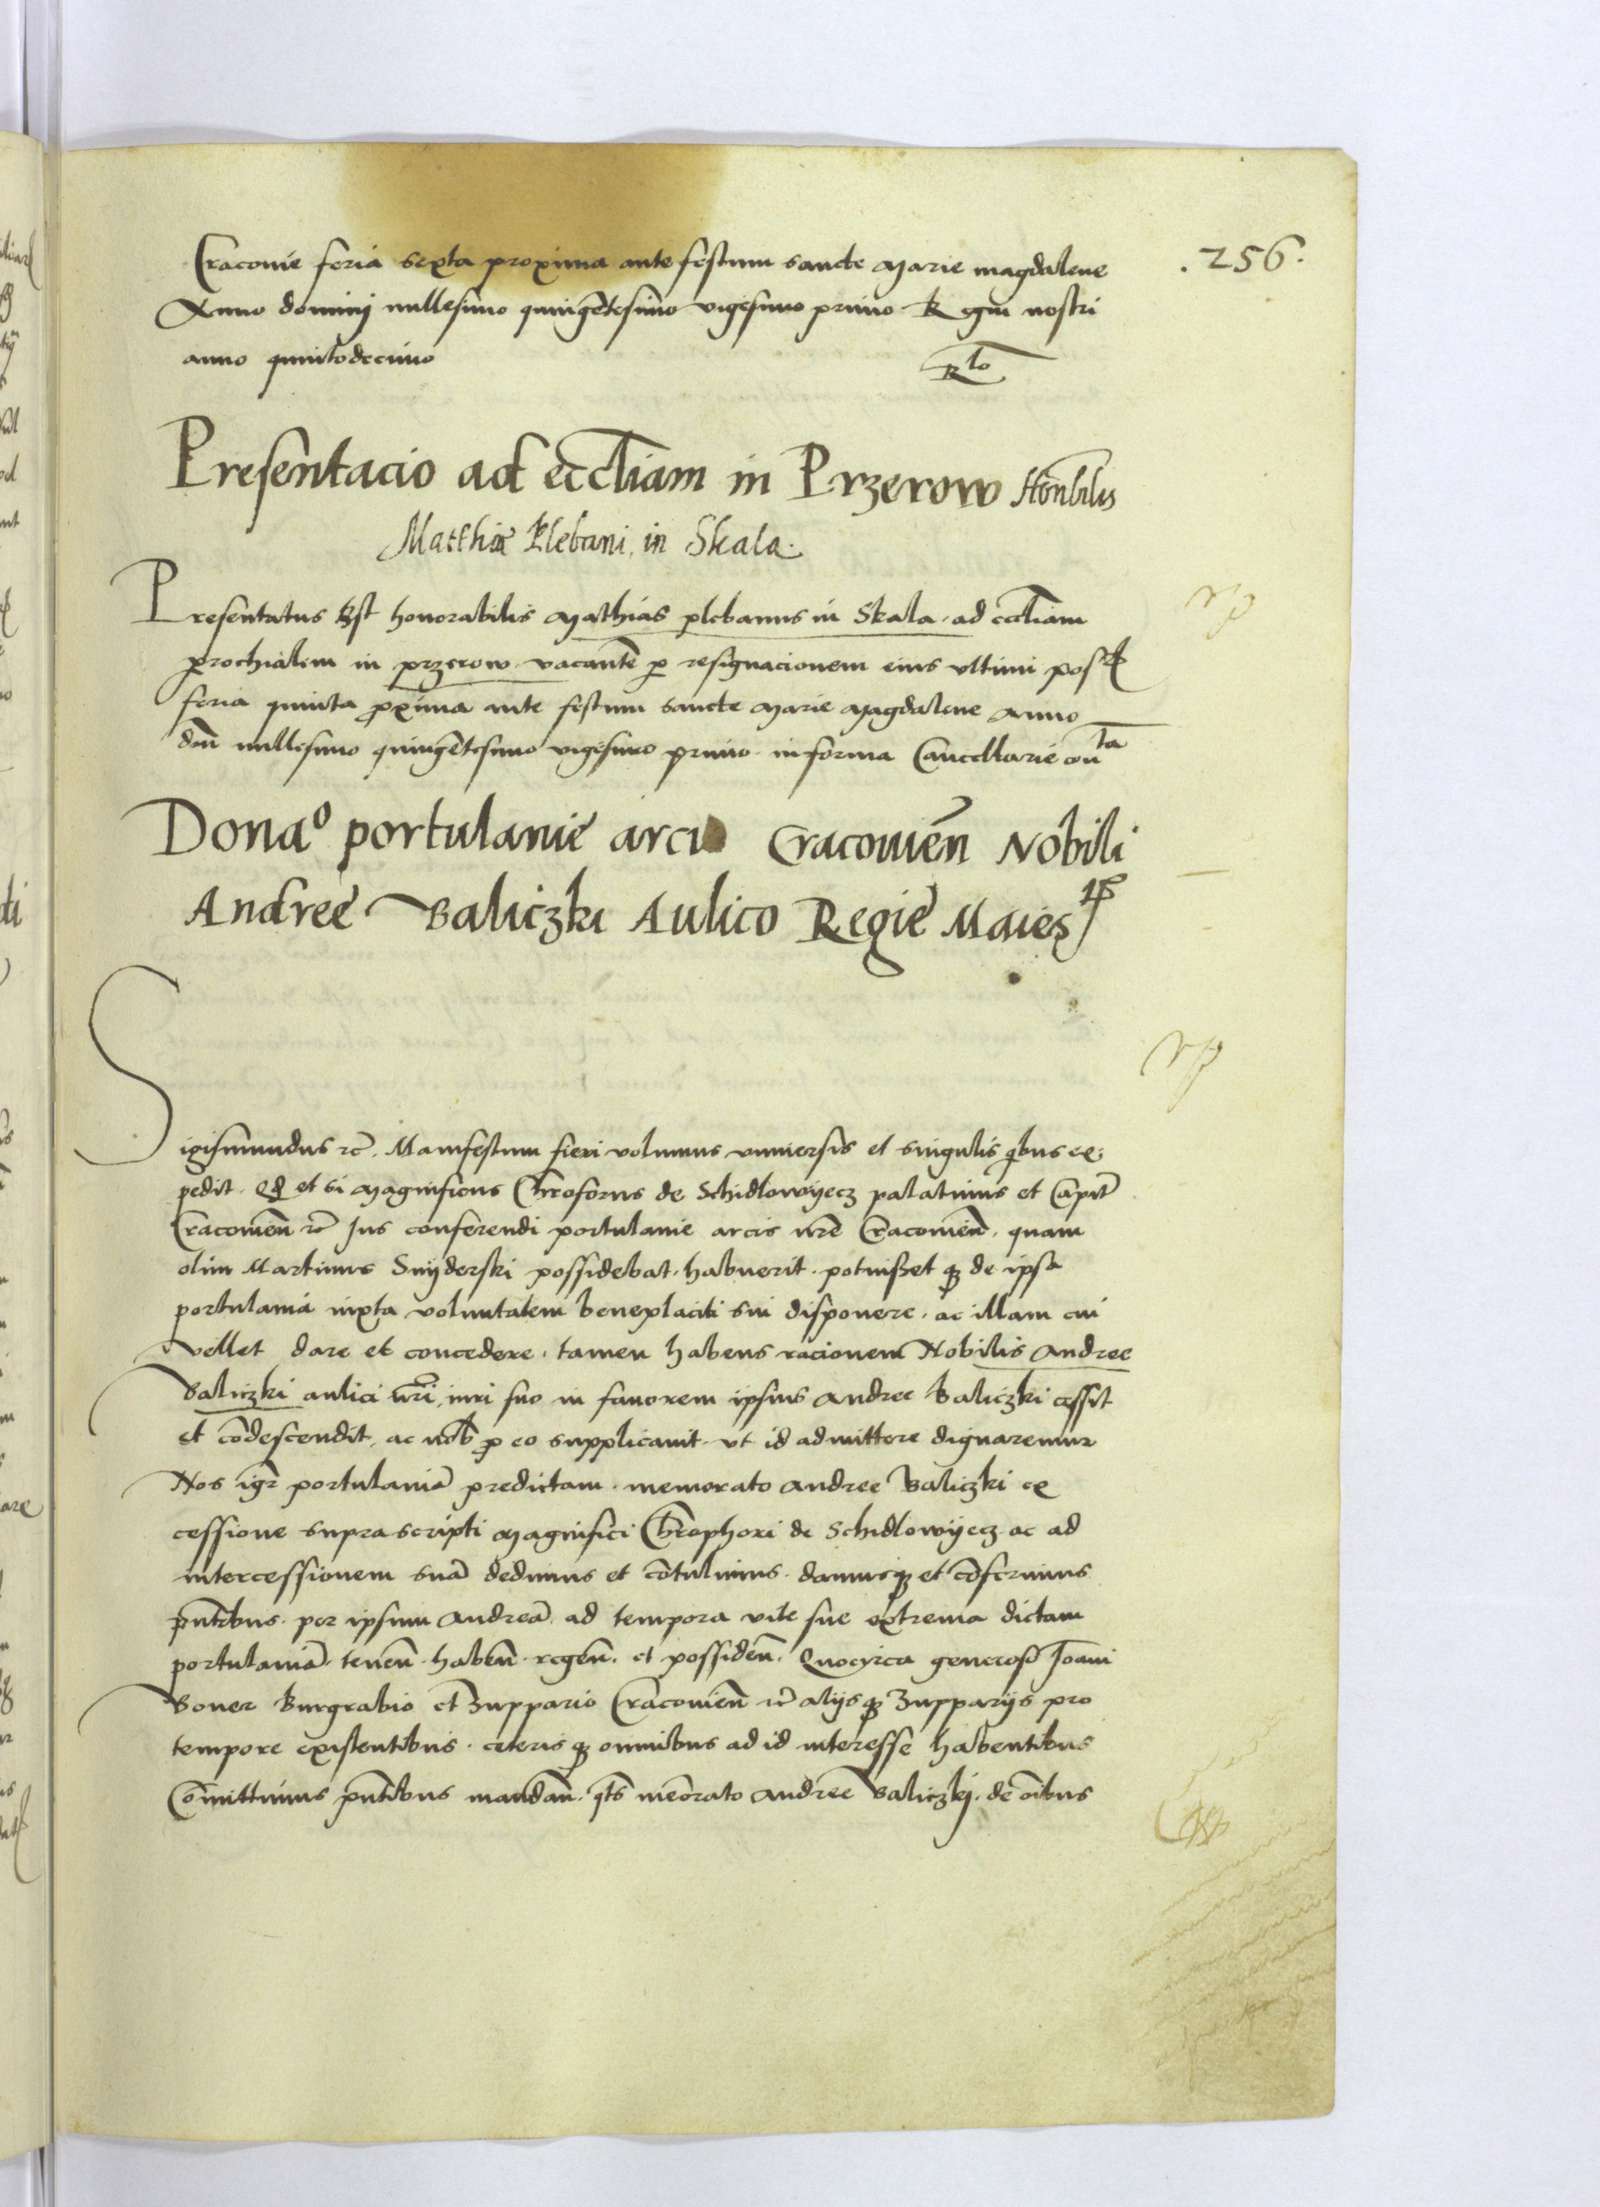 .256.
Cracovie feria sexta proxima ante festum sancte Marie magdalene
Anno dominij millesimo quingētesimo vigesimo primo Regni nostri
anno quintodecimo Rto
Presentacio ad eccliam in Przerow Honbilis
Matthiæ Plebani in Skala.
Presentatus Est honorabilis Mathias plebanus in Skala ad eccliam
prochialem in przerow vacantē p resignacionem eius vltimi poss
feria quinta proxima ante festum sancte Marie Magdalene Anno
dnī millesimo quingētesimo vigesimo primo in forma Cancellarie conta
Donao portulanie arcis Cracovien̄ Nobili
Andree Baliczki Aulico Regie Maies
Sigismundus rc̄. Manifestum fieri volumus vniversis et singulis qbus ex
pedit. Qd et si Magnificus Chrōforus de Schidlowyecz palatinus et Capit
Cracovien̄ rc̄ Jus conferendi portulanie arcis nrē Cracovien̄. quam
olim Martinus Swyderski possidebat. habuerit. potuisset q de ipsa
portulania iuxta voluntatem beneplaciti sui disponere. ac illam cui
vellet dare et concedere. tamen habens racionem Nobilis Andree
Baliczki aulici nrī, iuri suo in favorem ipsius Andree Baliczki cessit
et cōdescendit, ac nob p eo supplicavit. vt id admittere dignaremur
Nos igr portulaniā predictam. memorato Andree Baliczki ex
cessione suprascripti Magnifici Chrōphori de Schidlowyecz ac ad
intercessionem suā dedimus et cōtulimus. damusq et cōferimus
pn̄tibus. per ipsum Andreā. ad tempora vite sue extrema dictam
portulaniā. tenen̄. haben̄. regen̄. et possiden̄. Quocirca generoso Joāni
Boner Burgrabio et Zuppario Cracovien̄ rc̄ alijsq Zupparijs pro
tempore existentibus. ceterisq omnibus ad id interesse habentibus
Cōmittimus pn̄tibus mandan̄. qts memorato Andree Baliczkj. de oībus